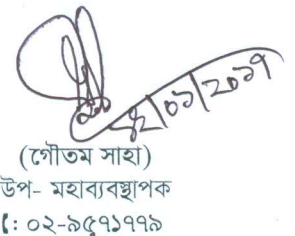 ০১|২০১৭
(গৌতম সাহা)
উপ- মহাব্যবস্থাপক
: ০২-৯৫৭১৭৭৯